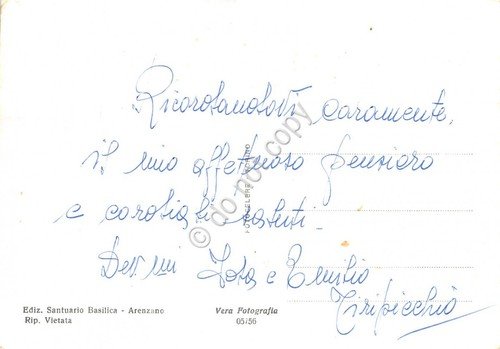 Ricordandovi caramente,
il mio affettuoso pensiero
e cordiali saluti.
Dev.mi Iole e Emilio
Tiripicchio
Ediz. Santuario Basilica - Arenzano
Rip. Vietata
Vera Fotografia
05/56
do not copy